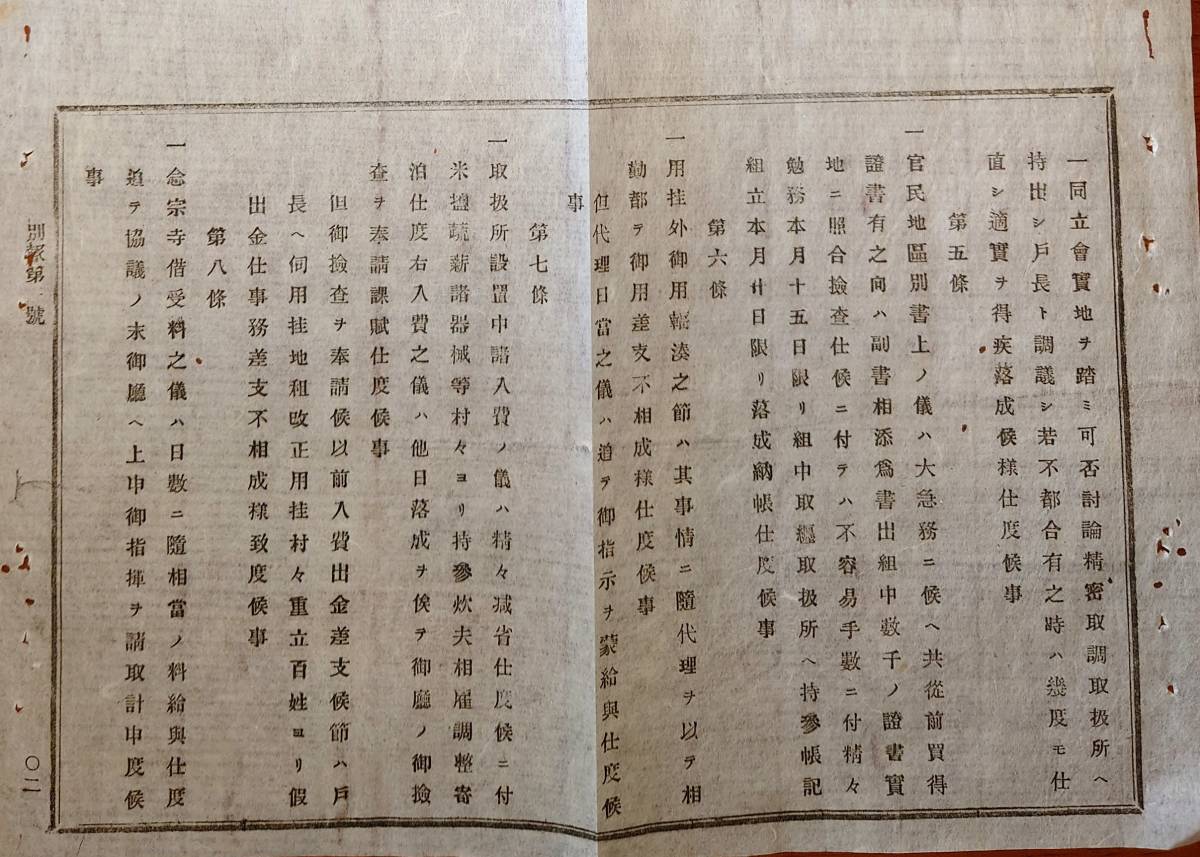 一同立會實地ヲ踏ミ可否討論精密取調取扱所ヘ
持出シ戸長ト調議シ若不都合有之時ハ幾度モ仕
直シ適實ヲ得疾落成候様仕度候事
第五條
一官民地區別書上ノ儀ハ大急務ニ候ヘ共從前買得
證書有之向ハ副書相添爲書出組中数千ノ證書實
地ニ照合撿査仕候ニ付テハ不容易手數ニ付精々
勉務本月十五日限リ組中取纒取扱所ヘ持參帳記
組立本月廿日限リ落成納帳仕度候事
第六條
一用掛外御用輻湊之節ハ其事情ニ隨代理ヲ以テ相
勤都テ御用差支不相成様仕度候事
但代理日當之儀ハ追テ御指示ヲ蒙給與仕度候
事
第七條
一取扱所設置中諸入費ノ儀ハ精々减省仕度候ニ付
米塩蔬薪諸器械等村々ヨリ持參炊夫相雇調整寄
泊仕度右入費之儀ハ他日落成ヲ俟テ御廳ノ御撿
査ヲ奉請課賦仕度候事
但御撿査ヲ奉請候以前入費出金差支候節ハ戸
長ヘ伺用挂地租改正用挂村々重立百姓ヨリ假
出金仕事務差支不相成様致度候事
第八條
一念宗寺借受料之儀ハ日数ニ隨相當ノ料給與仕度
追テ協議ノ末御廳ヘ上申御指揮ヲ請取計申度候
事
別報第 號
〇二